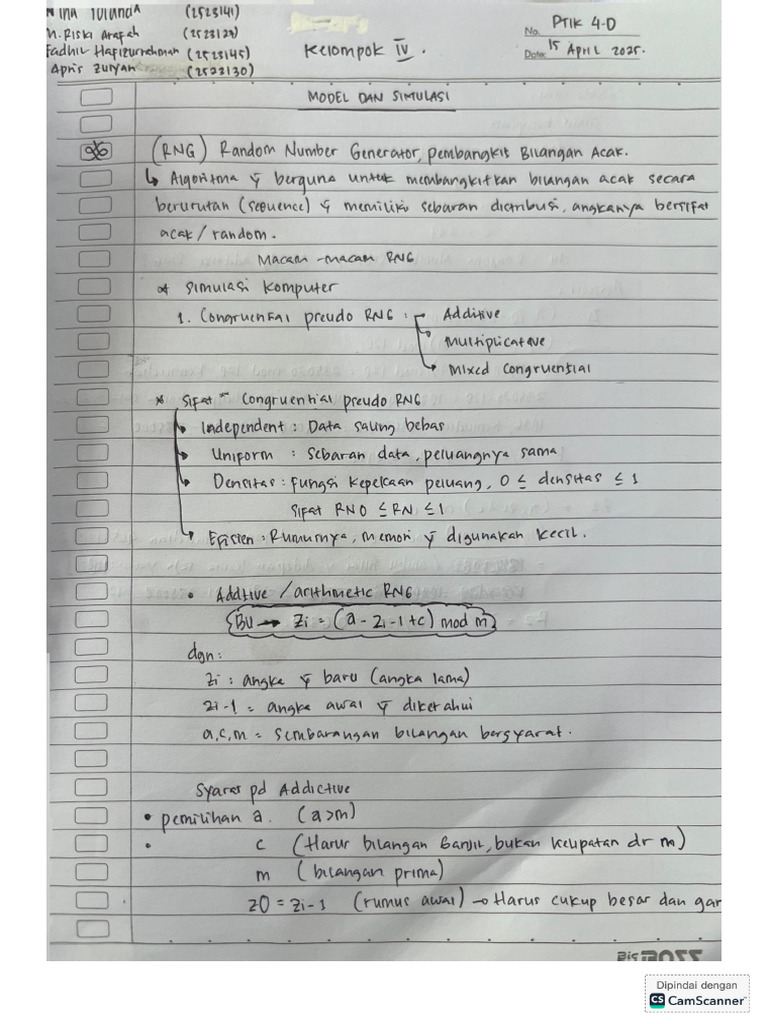 Nina Yulanda (2523141)
M. Riski Arafah (2523129)
Fadhil Hafizurrahman (2523145)
Apris Zulyan (2523130)
Kelompok IV.
No. PTIK 4-D
Date: 15 April 2025.
MODEL DAN SIMULASI
(RNG) Random Number Generator, Pembangkit Bilangan Acak.
↳ Algoritma yg berguna untuk membangkitkan bilangan acak secara
berurutan (sequence) yg memiliki sebaran distribusi, angkanya bersifat
acak / random.
Macam -macam RNG
* Simulasi Komputer
1. Congruental pseudo RNG : Additive
Multiplicative
Mixed Congruential
* Sifat² Congruential pseudo RNG
Independent : Data saling bebas
Uniform : Sebaran data, peluangnya sama
Densitas : Fungsi kepekaan peluang, 0 ≤ densitas ≤ 1
Sifat RN 0 ≤ RN ≤ 1
Efisien : Rumusnya, memori yg digunakan kecil.
• Additive / arithmetic RNG
BU → Zi = (a - Zi-1 + c) mod m
dgn :
Zi : angka yg baru (angka lama)
Zi-1 = angka awal yg diketahui
a, c, m = Sembarangan bilangan bersyarat.
Syarat pd Addictive
• pemilihan a. (a>m)
• c (Harus bilangan Ganjil, bukan kelipatan dr m)
m (bilangan prima)
Z0 = Zi-1 (rumus awal) → Harus cukup besar dan gan
Big BOSS
Dipindai dengan
CS CamScanner